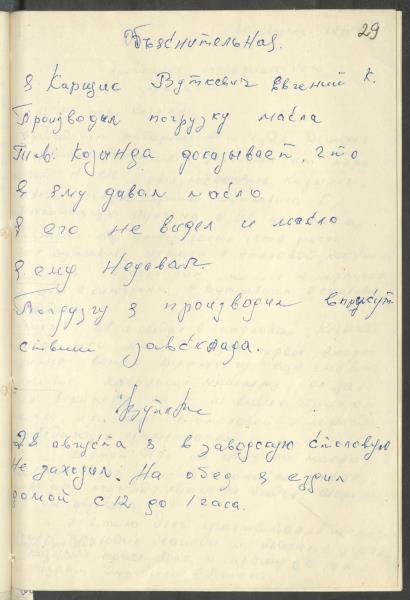 29
Объяснительная.
я Карщик Вуткевич Евгений К.
Производил погрузку масла
Тов. Козында доказывает, что
я ему давал масло
я его не видел и масло
я ему Недавал.
Погрузгу я производил вприсут
ствии завсклада.
28 августа я в заводскую столовую
Не заходил. На обед я ездил
домой с 12 до 1 часа.